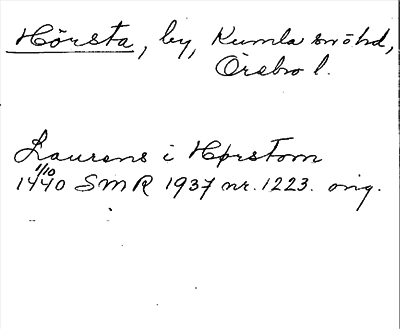 Hörsta, by, Kumla snöhd,
Örebro l.
Laurens i Hørstom
1/10
1440 SMR 1937 nr. 1223. orig.